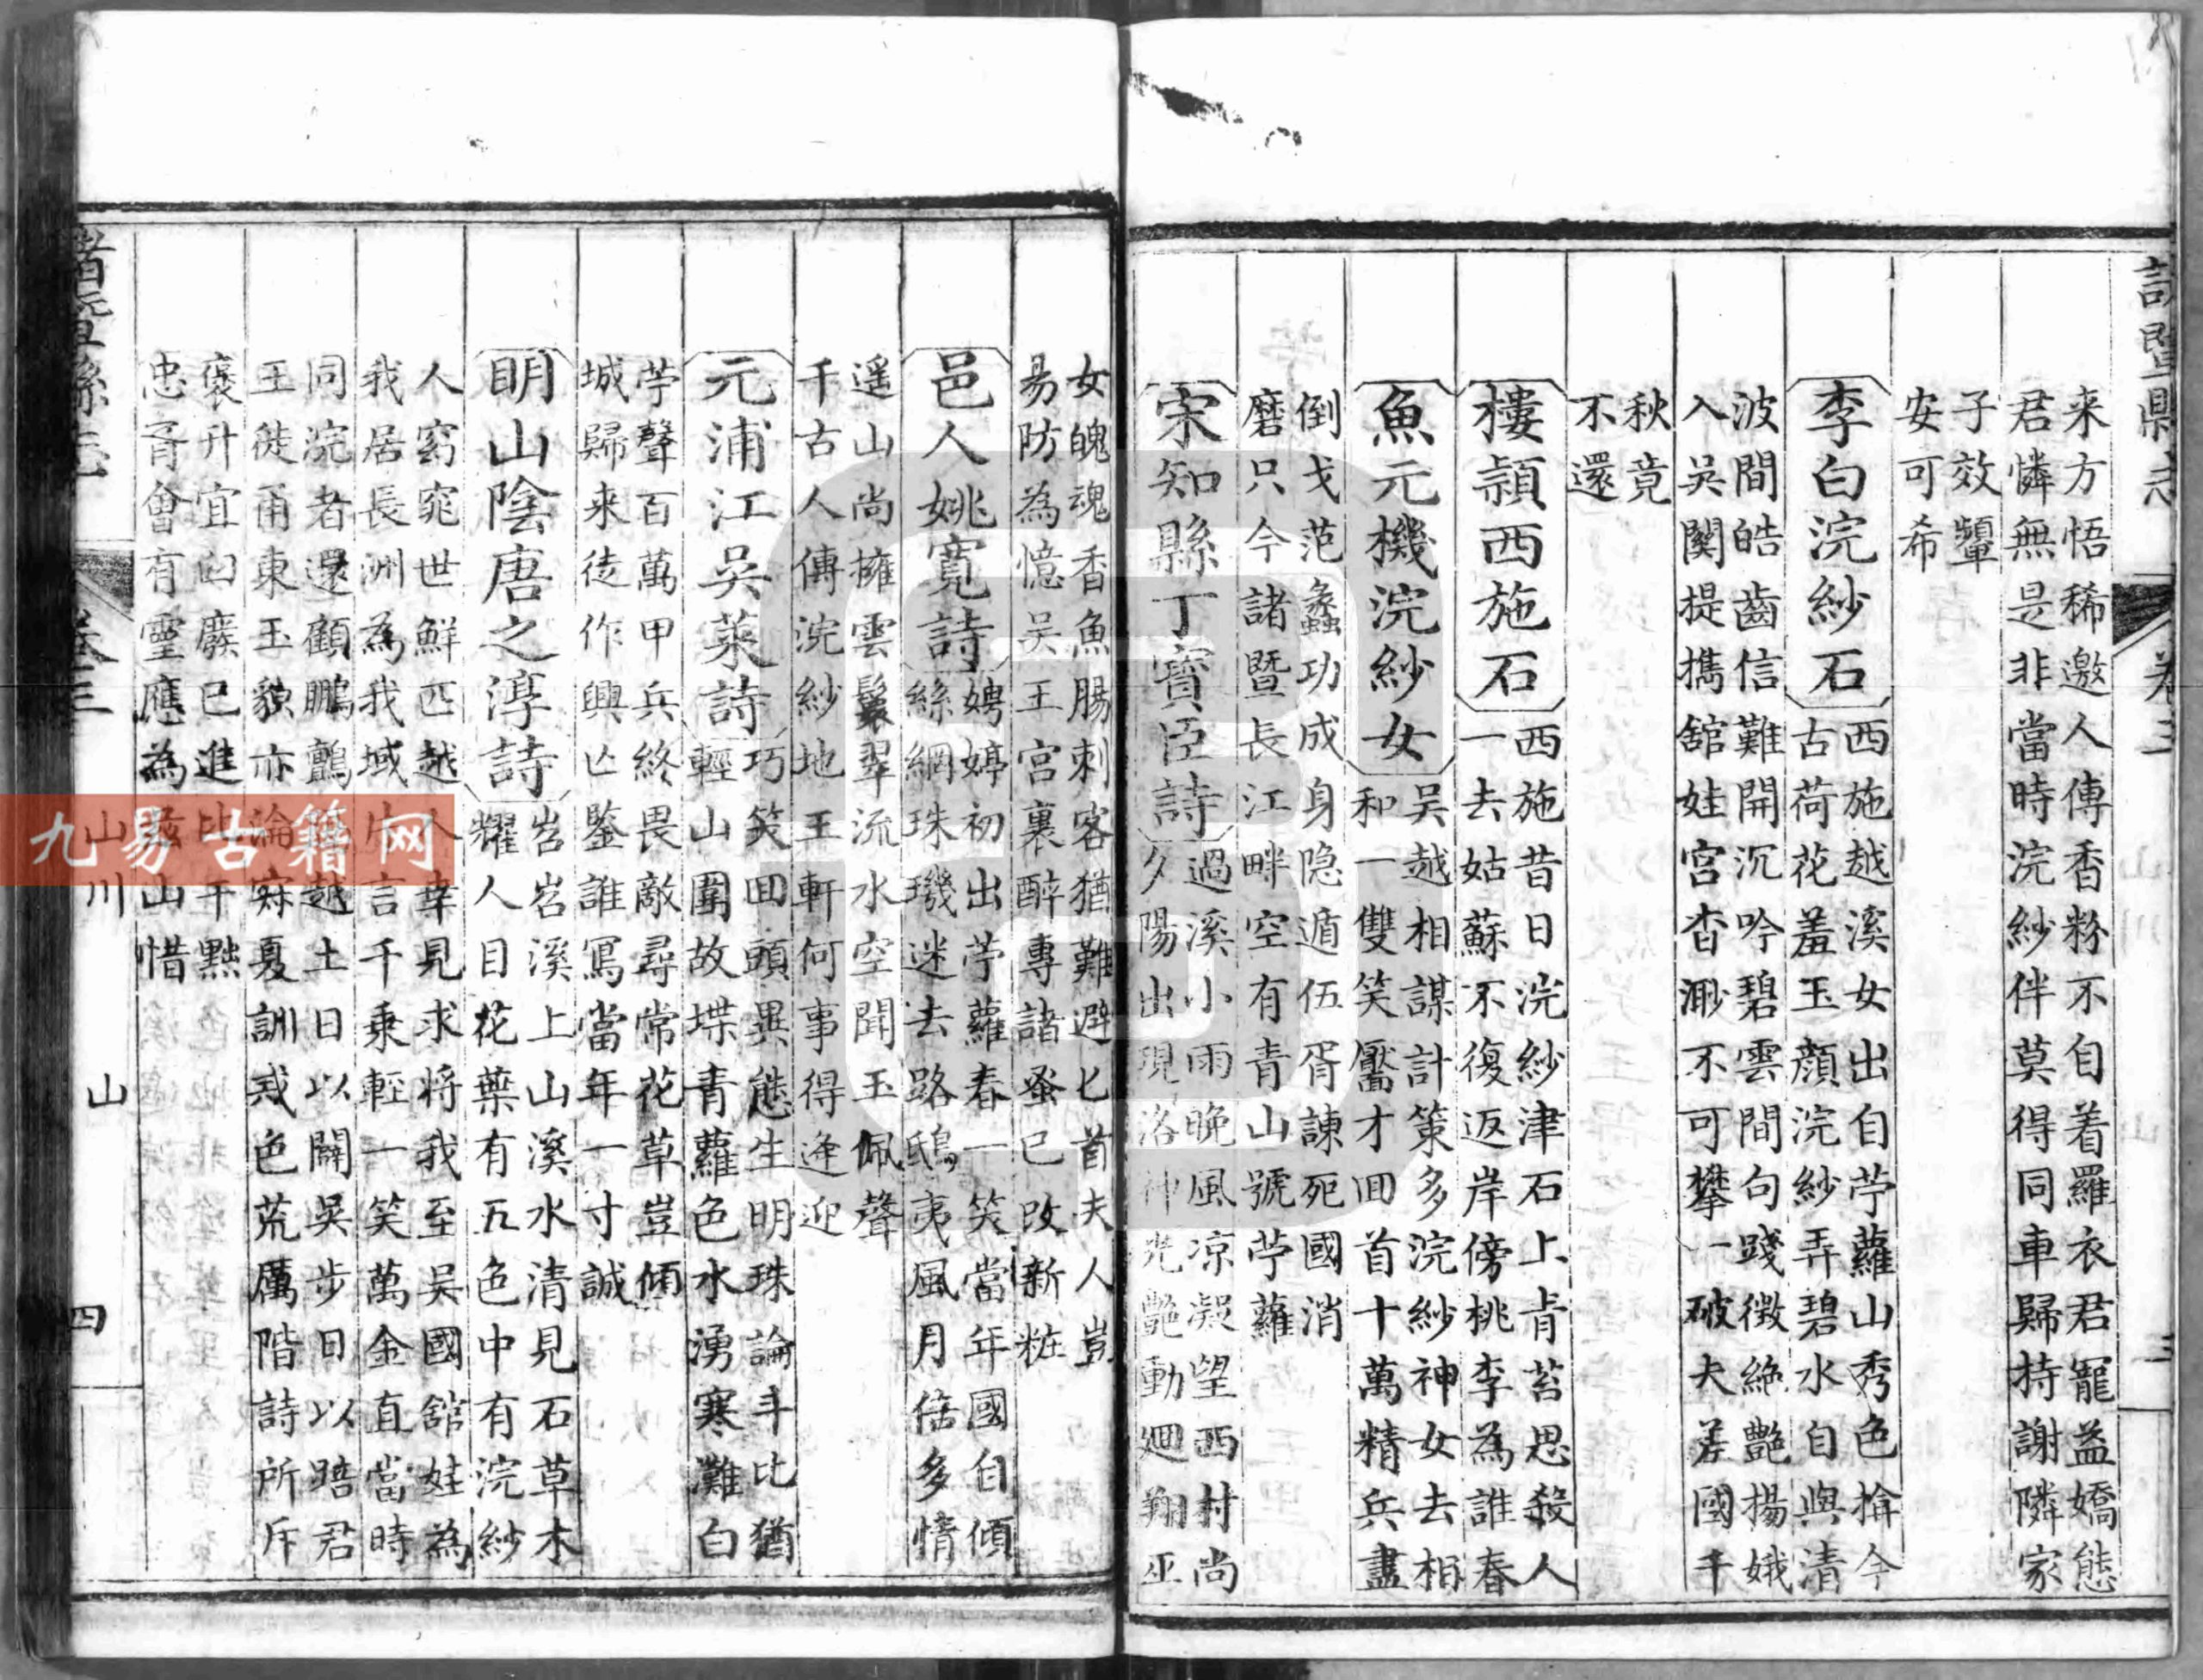 諸暨縣志 卷三 山川 山 三
来方悟稀邀人傳香粉不自着羅衣君寵益嬌態
君憐無是非當時浣紗伴莫得同車歸持謝隣家
子效顰
安可希
李白浣紗石
西施越溪女出自苧蘿山秀色揜今
古荷花羞玉顔浣紗弄碧水自與清
波間皓齒信難開沉吟碧雲間句踐徴絶艷揚娥
入吳關提擕舘娃宫杳渺不可攀一破夫差國千
秋竟
不還
樓頴西施石
西施昔日浣紗津石上青苔思殺人
一去姑蘇不復返岸傍桃李為誰春
魚元機浣紗女
吴越相謀計策多浣紗神女去相
和一雙笑靨才回首十萬精兵盡
倒戈范蠡功成身隐遁伍胥諫死國消
磨只今諸暨長江畔空有青山號苧蘿
宋知縣丁寳臣詩
過溪小雨晩風凉凝望西村尚
夕陽出現洛神光艷動廻翔巫
女魄魂香魚腸刺客猶難避匕首夫人豈
易防為憶吴王宫裏醉專諸蚤已改新粧
邑人姚寛詩
娉婷初出苧蘿春一笑當年國自傾
絲網珠璣迷去路鴟夷風月倍多情
遥山尚擁雲鬟翠流水空聞玉佩聲
千古人傳浣紗地王軒何事得逢迎
元浦江吳萊詩
巧笑回頭異態生明珠論斗比猶
輕山圍故堞青蘿色水湧寒灘白
苧聲百萬甲兵終畏敵尋常花草豈傾
城歸来徒作興亾鑒誰寫當年一寸誠
明山陰唐之淳詩
岧岧溪上山溪水清見石草木
耀人目花葉有五色中有浣紗
人窈窕世鮮匹越人幸見求将我至吴國舘娃為
我居長洲為我域片言千乗輕一笑萬金直當時
同浣者還顧鵬鷃籍越土日以闢吴步日以踣君
王徙甬東玉貌亦淪寂夏訓戒色荒厲階詩所斥
褒升宜臼廢已進比干黜
忠胥會有靈應為兹山惜
諸暨縣志 卷三 山川 山 四
九易古籍网